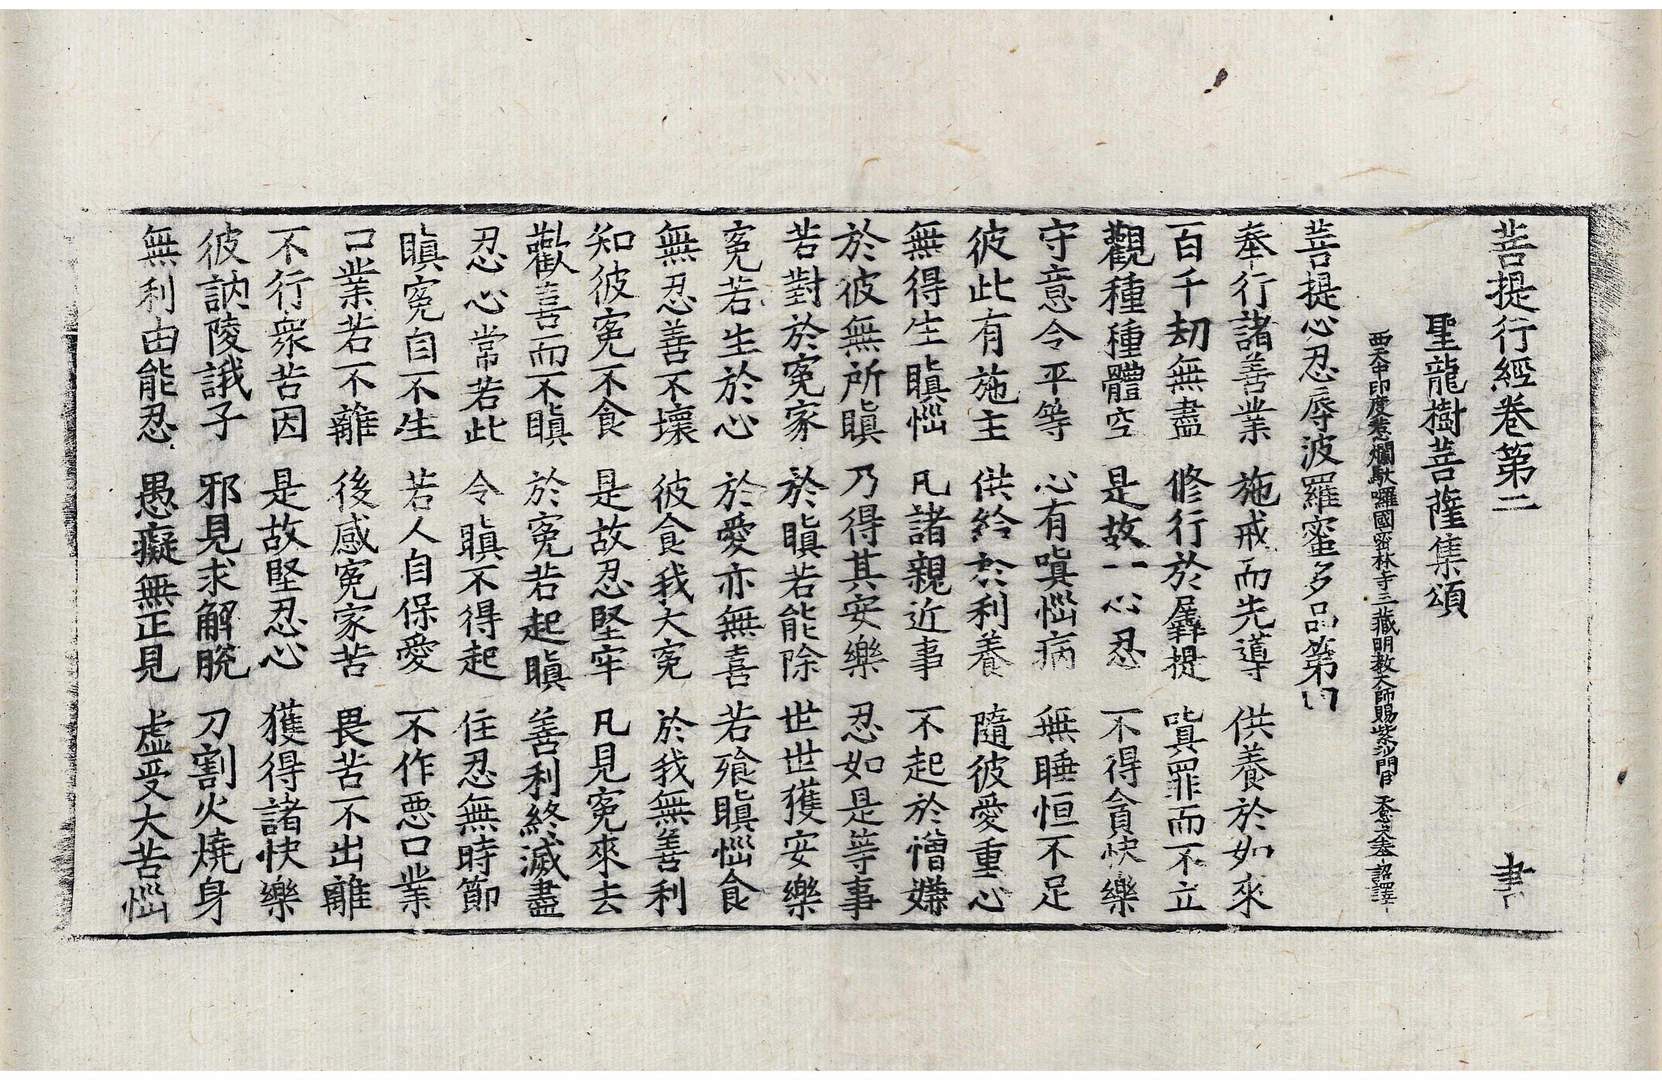 菩提行經卷第二 書
聖龍樹菩薩集頌
西天中印度惹爛馱囉國密林寺三藏明教大師賜紫沙門臣 天息災奉 詔譯
菩提心忍辱波羅蜜多品第四
奉行諸善業 施戒而先導 供養於如來
百千劫無盡 修行於羼提 嗔罪而不立
觀種種體空 是故一心忍 不得貪快樂
守意令平等 心有嗔惱病 無睡恒不足
彼此有施主 供給於利養 隨彼愛重心
無得生瞋惱 凡諸親近事 不起於憎嫌
於彼無所瞋 乃得其安樂 忍如是等事
若對於冤家 於瞋若能除 世世獲安樂
冤若生於心 於愛亦無喜 若飱瞋惱食
無忍善不壞 彼食我大冤 於我無善利
知彼冤不食 是故忍堅牢 凡見冤來去
歡喜而不瞋 於冤若起瞋 善利終滅盡
忍心常若此 令瞋不得起 住忍無時節
瞋冤自不生 若人自保愛 不作惡口業
口業若不離 後感冤家苦 畏苦不出離
不行衆苦因 是故堅忍心 獲得諸快樂
彼訥陵誐子 邪見求解脫 刀割火燒身
無利由能忍 愚癡無正見 虛受大苦惱